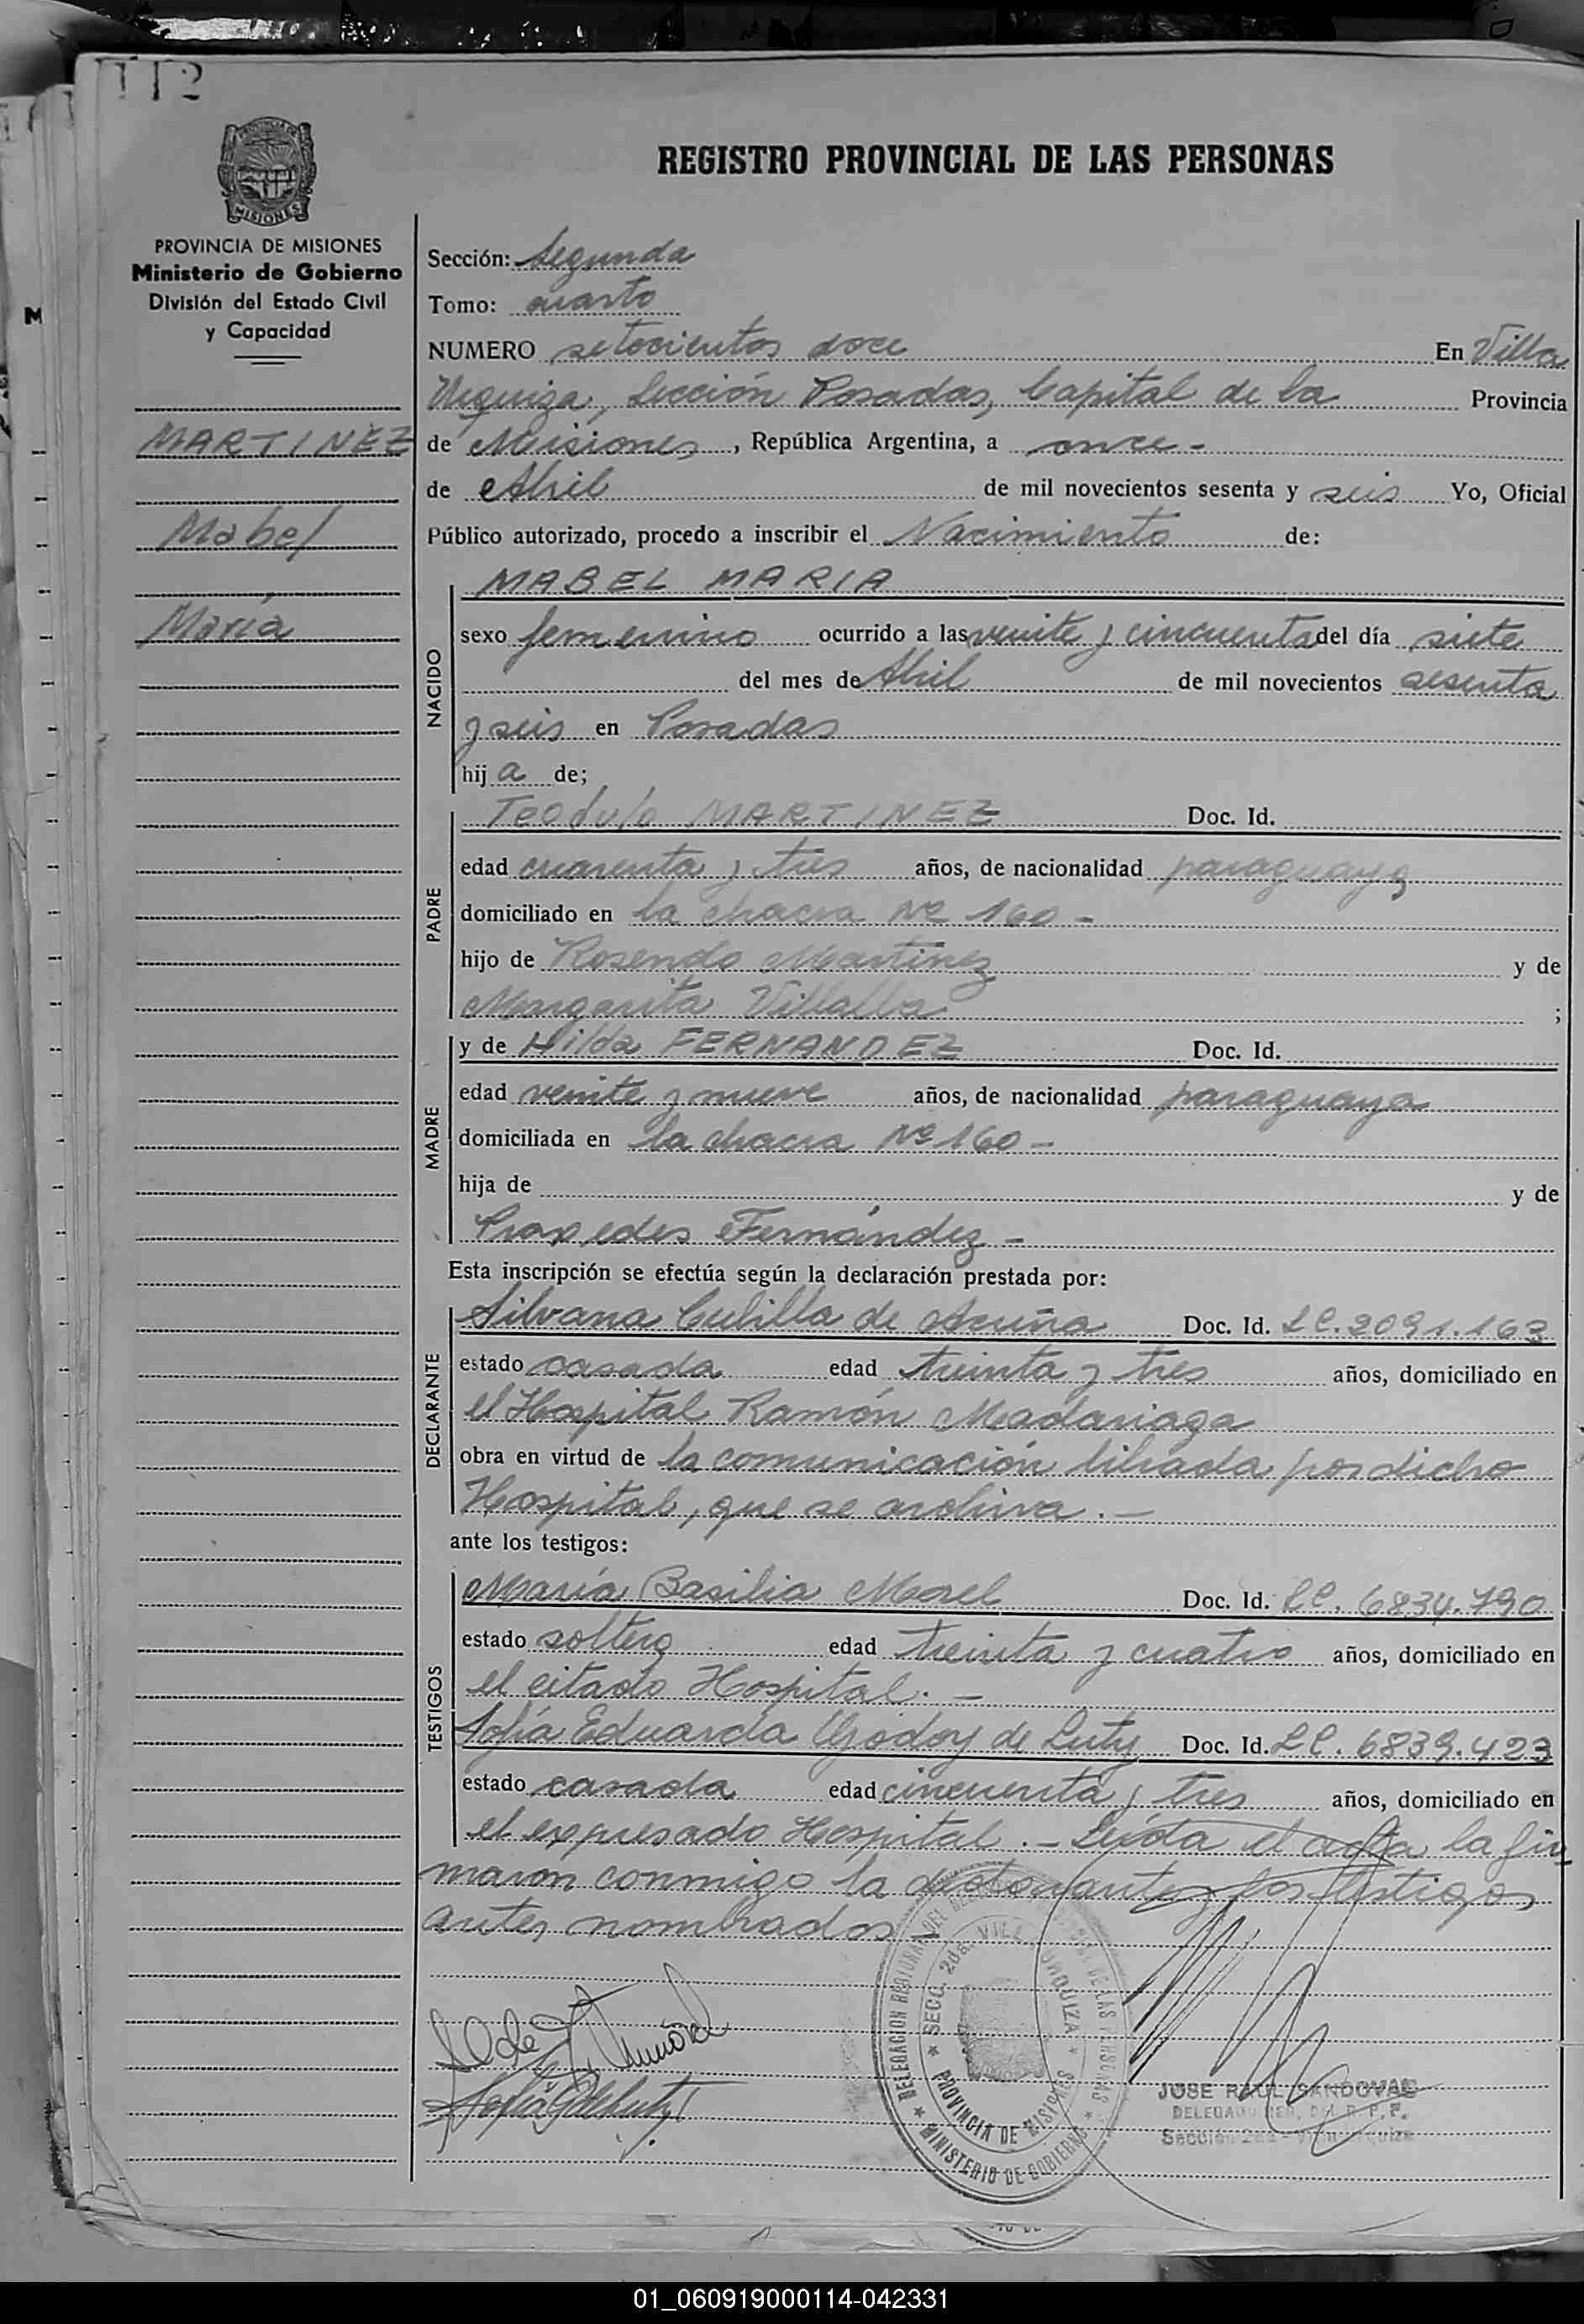 112
PROVINCIA DE MISIONES
MISIONES
REGISTRO PROVINCIAL DE LAS PERSONAS
PROVINCIA DE MISIONES
Ministerio de Gobierno
División del Estado Civil
y Capacidad
MARTINEZ
Mabel
María
Sección: Segunda
Tomo: cuarto
NUMERO setecientos doce En Villa
Urquiza, Sección Posadas, Capital de la Provincia
de Misiones, República Argentina, a once -
de Abril de mil novecientos sesenta y seis Yo, Oficial
Público autorizado, procedo a inscribir el Nacimiento de:
NACIDO
MABEL MARIA
sexo femenino ocurrido a las veinte y cincuenta del día siete
del mes de Abril de mil novecientos sesenta
y seis en Posadas
hij a de;
PADRE
Teodulo MARTINEZ Doc. Id.
edad cuarenta y tres años, de nacionalidad paraguaya
domiciliado en la chacra Nº 160 -
hijo de Rosendo Martinez y de
Margarita Villalba ;
MADRE
y de Hilda FERNANDEZ Doc. Id.
edad veinte y nueve años, de nacionalidad paraguaya
domiciliada en la chacra Nº 160 -
hija de y de
Fernández -
Esta inscripción se efectúa según la declaración prestada por:
DECLARANTE
Silvana Cubilla de Acuña Doc. Id. LC. 2091.163
estado casada edad treinta y tres años, domiciliado en
el Hospital Ramón Madariaga
obra en virtud de la comunicación librada por dicho
Hospital, que se archiva. -
ante los testigos:
TESTIGOS
María Basilia Morel Doc. Id. LC. 6834.790
estado soltera edad treinta y cuatro años, domiciliado en
el citado Hospital. -
Sofía Eduarda Godoy de Luty Doc. Id. LC. 6839.423
estado casada edad cincuenta y tres años, domiciliado en
el expresado Hospital. - Leída el acta la fir-
maron conmigo la declarante y los testigos
antes nombrados
DELEGACION REGIONAL DEL REGISTRO PROVINCIAL DE LAS PERSONAS
SECC. 2da. VILLA URQUIZA
PROVINCIA DE MISIONES
MINISTERIO DE GOBIERNO
JOSE RAUL SANDOVAL
DELEGADO REG. DEL R. P. P.
Sección 2da - Villa Urquiza
01_060919000114-042331